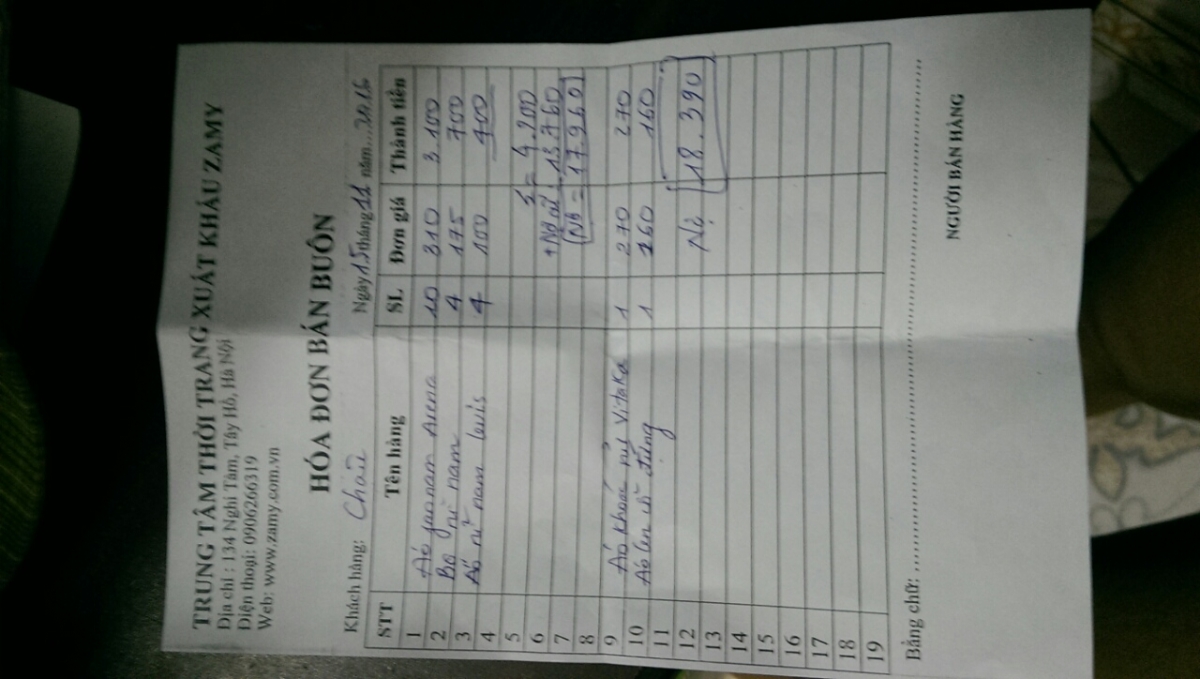 TRUNG TÂM THỜI TRANG XUẤT KHẨU ZAMY
Địa chỉ : 134 Nghi Tàm, Tây Hồ, Hà Nội
Điện thoại: 0906266319
Web: www.zamy.com.vn
HÓA ĐƠN BÁN BUÔN
Khách hàng: Châu
Ngày 15 tháng 11 năm 2016
STT Tên hàng SL Đơn giá Thành tiền
1
2 Áo nam Arena 10 310 3.100
3 Bộ nỉ nam 4 175 700
4 Áo nỉ nam luis 4 100 400
5
6 Σ = 4.200
7 + Nợ cũ : 13.760
8 Nợ = 17.960
9 Áo khoác nữ Vitaka 1 270 270
10 Áo len 1 160 160
11
12 Nợ 18.390
13
14
15
16
17
18
19
Bằng chữ:
NGƯỜI BÁN HÀNG